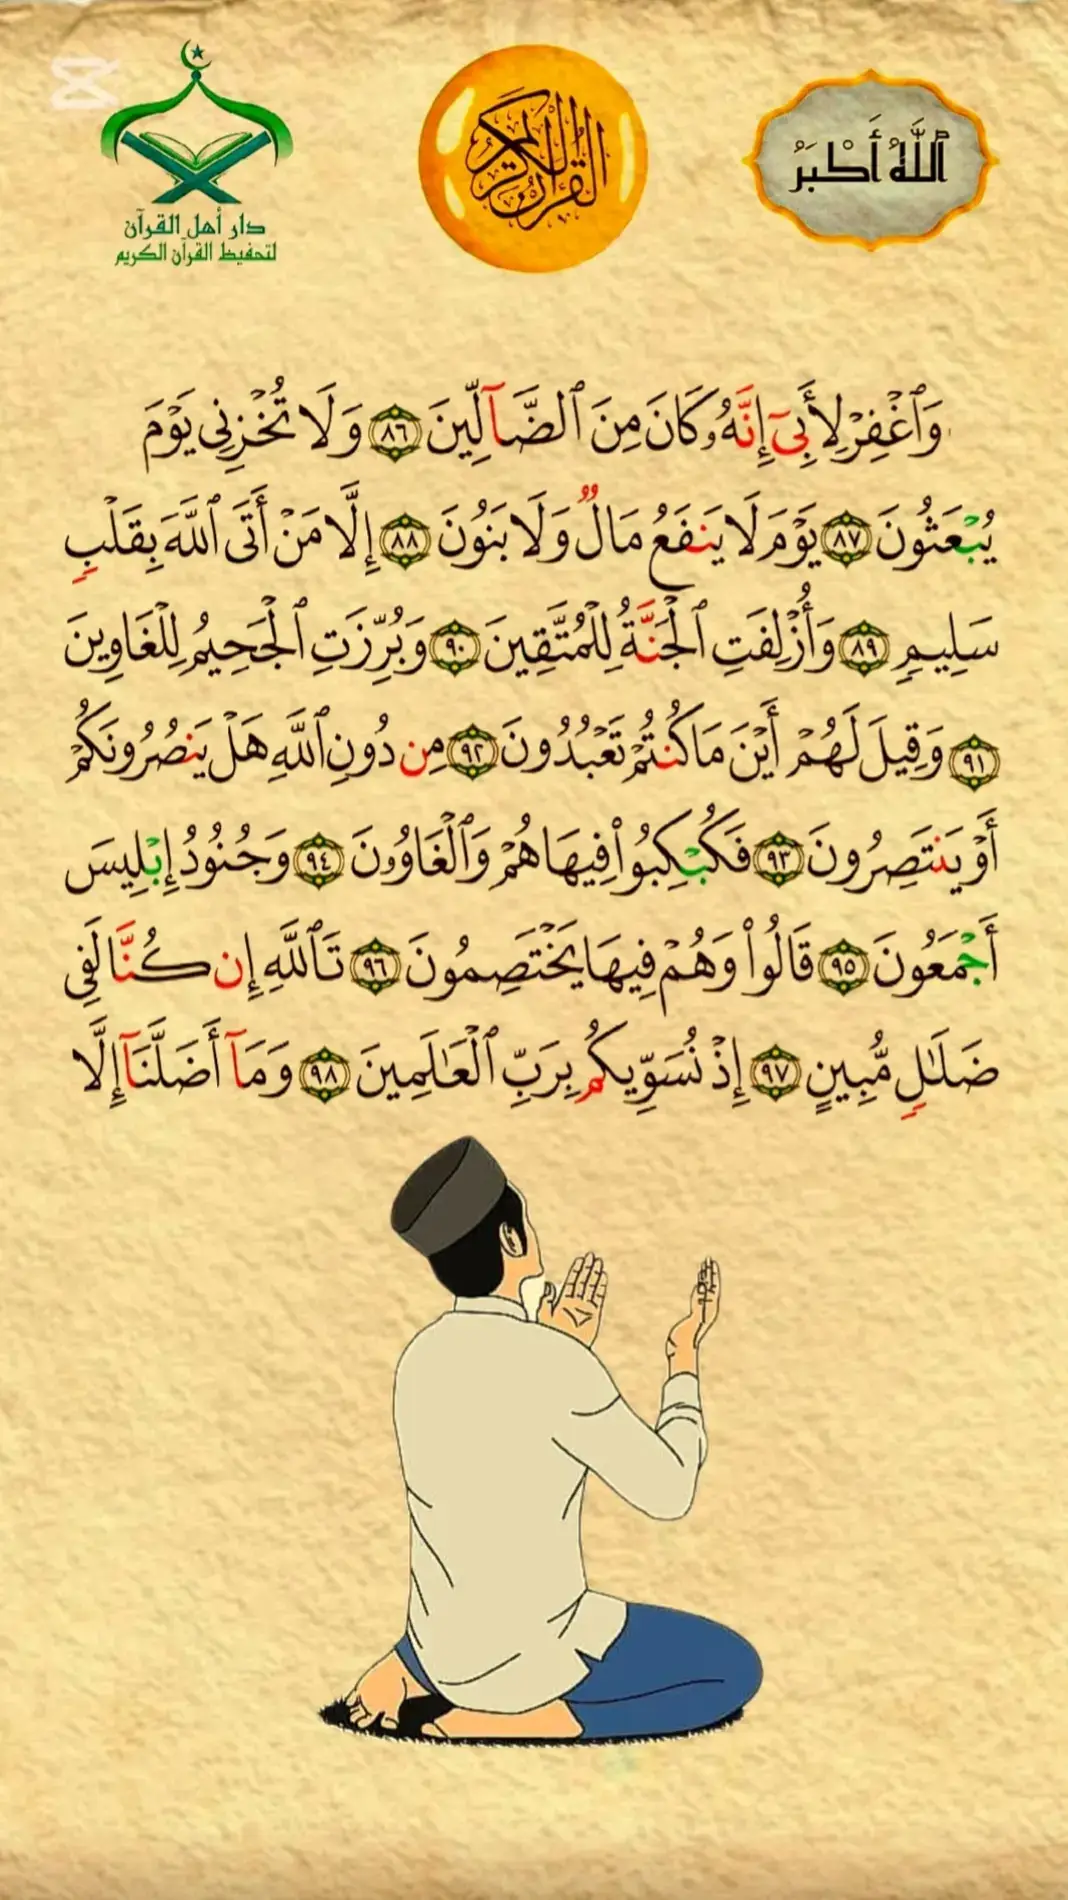 دار أهل القرآن
لتحفيظ القرآن الكريم
القرآن الكريم
ٱللَّهُ أَكْبَرُ
وَٱغْفِرْ لِأَبِىٓ إِنَّهُۥ كَانَ مِنَ ٱلضَّآلِّينَ ٨٦ وَلَا تُخْزِنِى يَوْمَ
يُبْعَثُونَ ٨٧ يَوْمَ لَا يَنفَعُ مَالٌ وَلَا بَنُونَ ٨٨ إِلَّا مَنْ أَتَى ٱللَّهَ بِقَلْبٍ
سَلِيمٍ ٨٩ وَأُزْلِفَتِ ٱلْجَنَّةُ لِلْمُتَّقِينَ ٩٠ وَبُرِّزَتِ ٱلْجَحِيمُ لِلْغَاوِينَ
٩١ وَقِيلَ لَهُمْ أَيْنَ مَا كُنتُمْ تَعْبُدُونَ ٩٢ مِن دُونِ ٱللَّهِ هَلْ يَنصُرُونَكُمْ
أَوْ يَنتَصِرُونَ ٩٣ فَكُبْكِبُوا۟ فِيهَا هُمْ وَٱلْغَاوُۥنَ ٩٤ وَجُنُودُ إِبْلِيسَ
أَجْمَعُونَ ٩٥ قَالُوا۟ وَهُمْ فِيهَا يَخْتَصِمُونَ ٩٦ تَٱللَّهِ إِن كُنَّا لَفِى
ضَلَـٰلٍ مُّبِينٍ ٩٧ إِذْ نُسَوِّيكُم بِرَبِّ ٱلْعَـٰلَمِينَ ٩٨ وَمَآ أَضَلَّنَآ إِلَّا